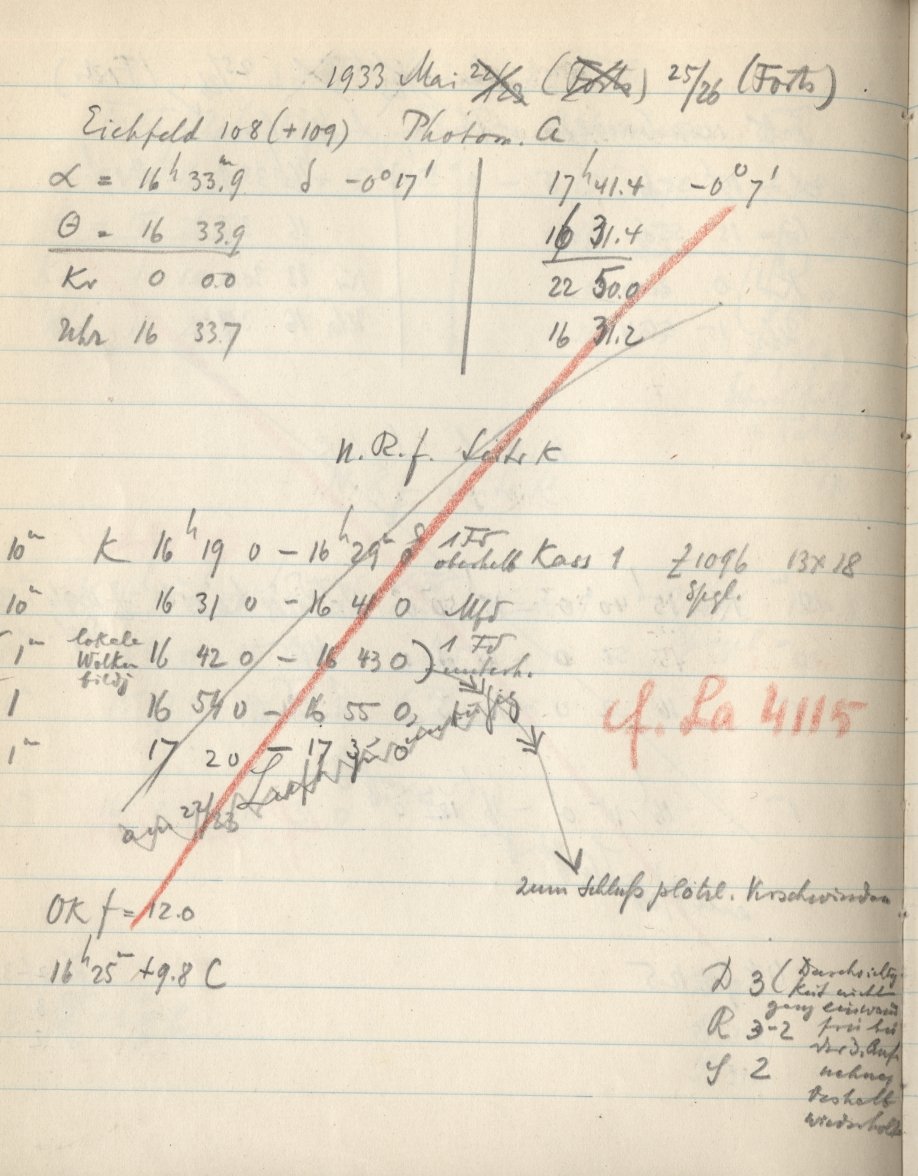 1933 Mai 22/23 (Forts) 25/26 (Forts)
Eichfeld 108 (+109) Photom. A
α = 16h 33.m9 δ -0°17' 17h 41.4 -0°7'
θ = 16 33.9 16 31.4
Kr 0 0.0 22 50.0
Uhr 16 33.7 16 31.2
n. R. f. Leitr K
10m K 16h 19 0 – 16h 29m 0s 1 Fd oberhalb Kass 1 Z 1096 13x18
Spgl.
10m 16 31 0 – 16 41 0 Mfd
1m lokale Wolkenbildg 16 42 0 – 16 43 0) 1 Fd unterh.
1 16 54 0 – 16 55 0
1m 17 2 0 – 17 3 0
cf. La 4115
am 22/33
zum Schluß plötzl. Verschwinden
OK f = 12.0
16h 25m +9.8 C
D 3 (Durchsichtigkeit nicht
ganz einwand
R 3-2 frei bei
der 3. Auf
S 2 nahme,
deshalb
wiederholt